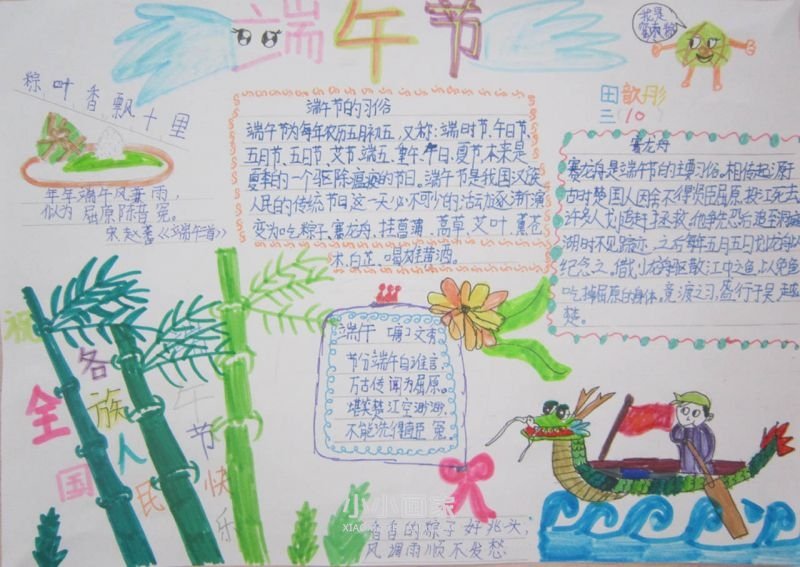 端午节
我是
粽叶香飘十里
田歆彤
三(10
端午节的习俗
端午节为每年农历五月初五,又称:端阳节、午日节、
五月节、五日节、艾节、端五、重午、午日、夏节,本来是
夏季的一个驱除瘟疫的节日。端午节是我国汉族
人民的传统节日这一天必不可少的活动逐渐演
变为吃粽子、赛龙舟、挂菖蒲、蒿草、艾叶、薰苍
术、白芷、喝雄黄酒。
赛龙舟
赛龙舟是端午节的主要习俗。相传起源于
古时楚国人因舍不得贤臣屈原投江死去
许多人划船追赶拯救。他们争先恐后,追至洞庭
湖时不见踪迹,之后每年五月五日划龙舟以
纪念之。借划龙舟驱散江中之鱼,以免鱼
吃掉屈原的身体。竞渡之习,盛行于吴、越、
楚。
年年端午风兼雨,
似为屈原陈昔冤。
宋 赵蕃《端午》
端午 (唐)文秀
节分端午自谁言,
万古传闻为屈原。
堪笑楚江空渺渺,
不能洗得直臣冤。
祝
全国
各族人民
午节快乐
香香的粽子好兆头,
风调雨顺不发愁
小小画家